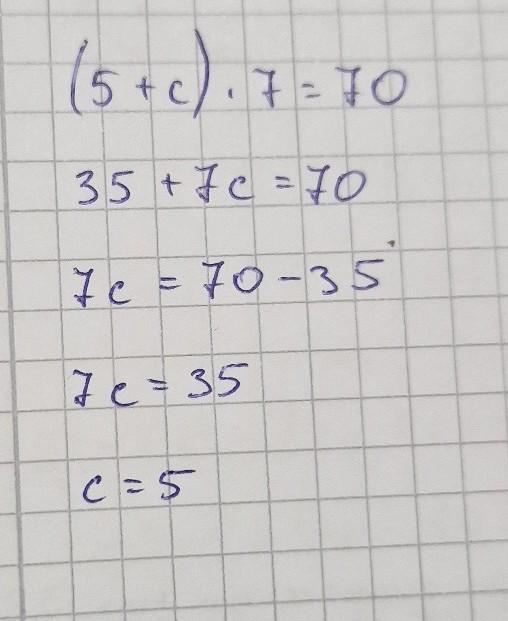 (5 + c) . 7 = 70
35 + 7c = 70
7c = 70 - 35
7c = 35
c = 5